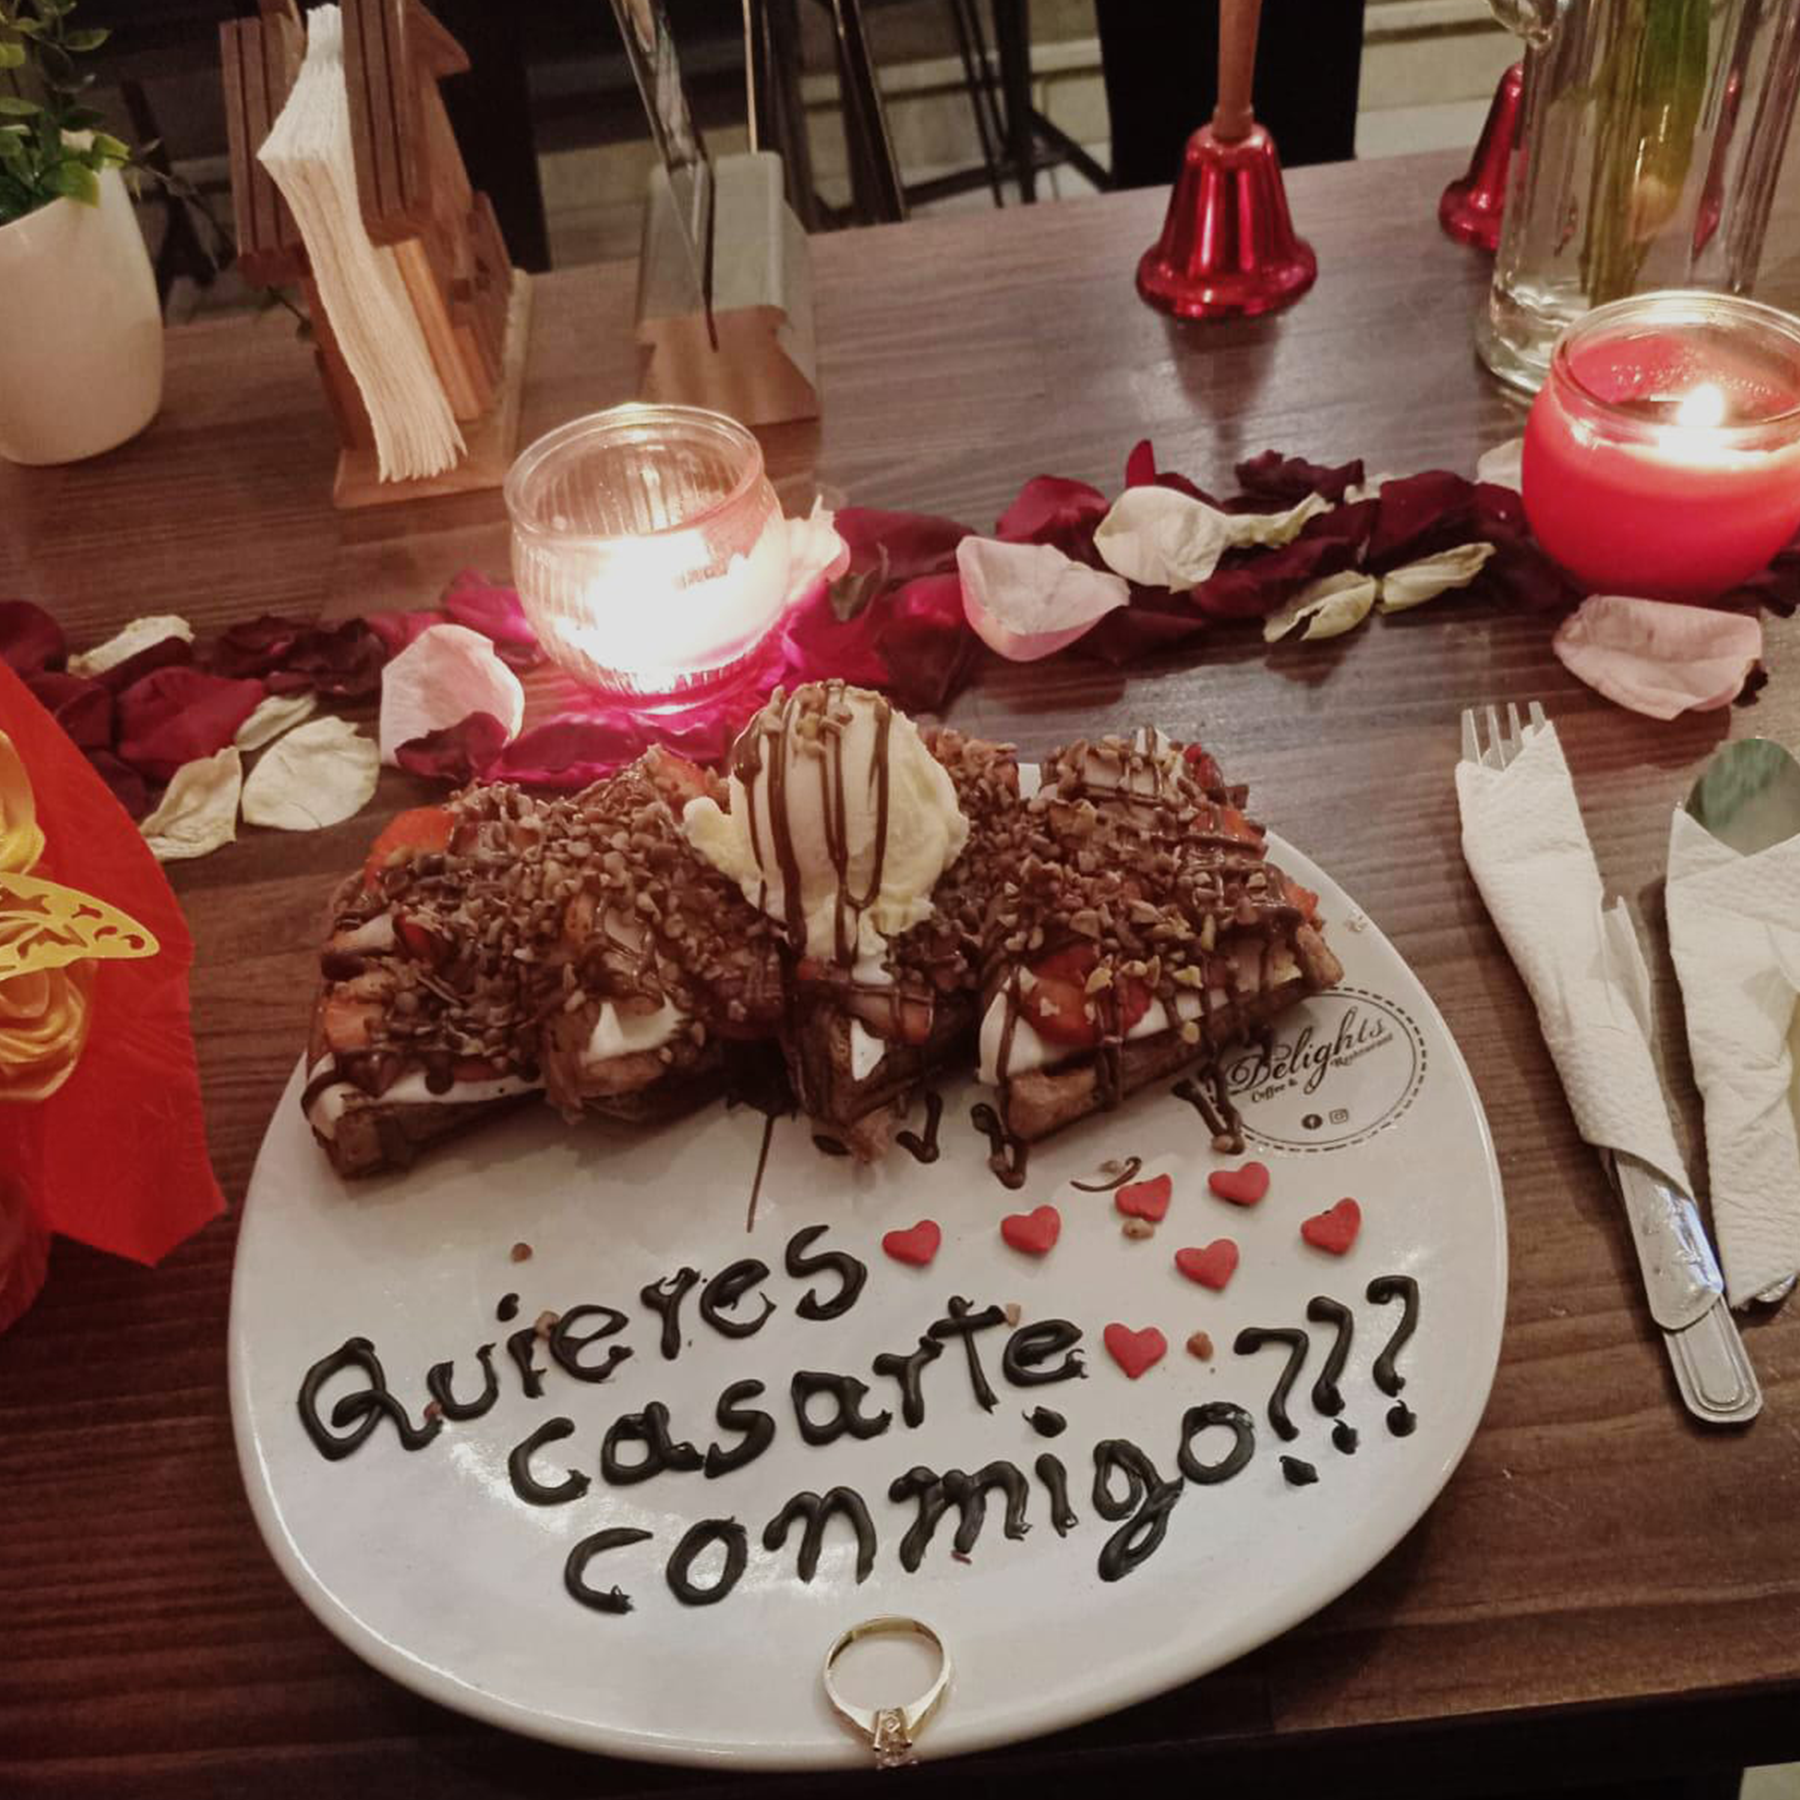 Delights
Coffee & Restaurant
Quieres
casarte
conmigo???